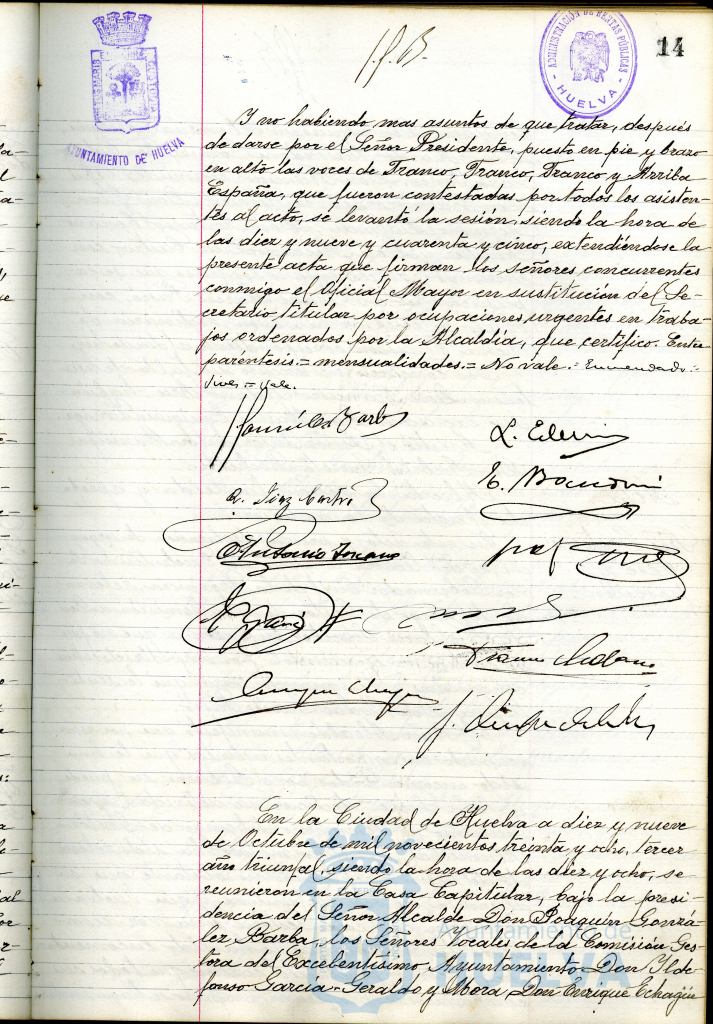 ADMINISTRACIÓN DE RENTAS PÚBLICAS
- HUELVA -
14
AYUNTAMIENTO DE HUELVA
Y no habiendo mas asuntos de que tratar, después
de darse por el Señor Presidente, puesto en pie y brazo
en alto las voces de Franco, Franco, Franco y Arriba
España, que fueron contestadas por todos los asisten-
tes al acto, se levantó la sesión, siendo la hora de
las diez y nueve y cuarenta y cinco, extendiéndose la
presente acta que firman los señores concurrentes
conmigo el Oficial Mayor en sustitución del Se-
cretario titular por ocupaciones urgentes en traba-
jos ordenados por la Alcaldía, que certifico. Entre
paréntesis.= mensualidades.= No vale.= Enmendado.=
= vale.
González Barba
Antonio
En la Ciudad de Huelva a diez y nueve
de Octubre de mil novecientos treinta y ocho, tercer
año triunfal, siendo la hora de las diez y ocho, se
reunieron en la Casa Capitular, bajo la presi-
dencia del Señor Alcalde Don Joaquín Gonzá-
lez Barba, los Señores Vocales de la Comisión Ges-
tora del Excelentísimo Ayuntamiento Don Ylde-
fonso García-Geraldo y Mora Don Enrique Echagüe
Ayuntamiento de
HUELVA